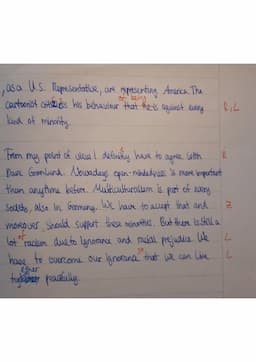 , as a U.S. Representative, are representing America. The
cartoonist his behaviour that he is against every R, L
kind of minority.
From my point of view I definitely have to agree with R
Dave Granlund. Nowadays open-mindedness is more important
than anytime before. Multiculturalism is part of every
society, also in Germany. We have to accept that and Z
moreover, should support these minorities. But there is still a
lot of racism due to ignorance and racial prejudice. We L
have to overcome our ignorance so that we can live L
together peacefully.